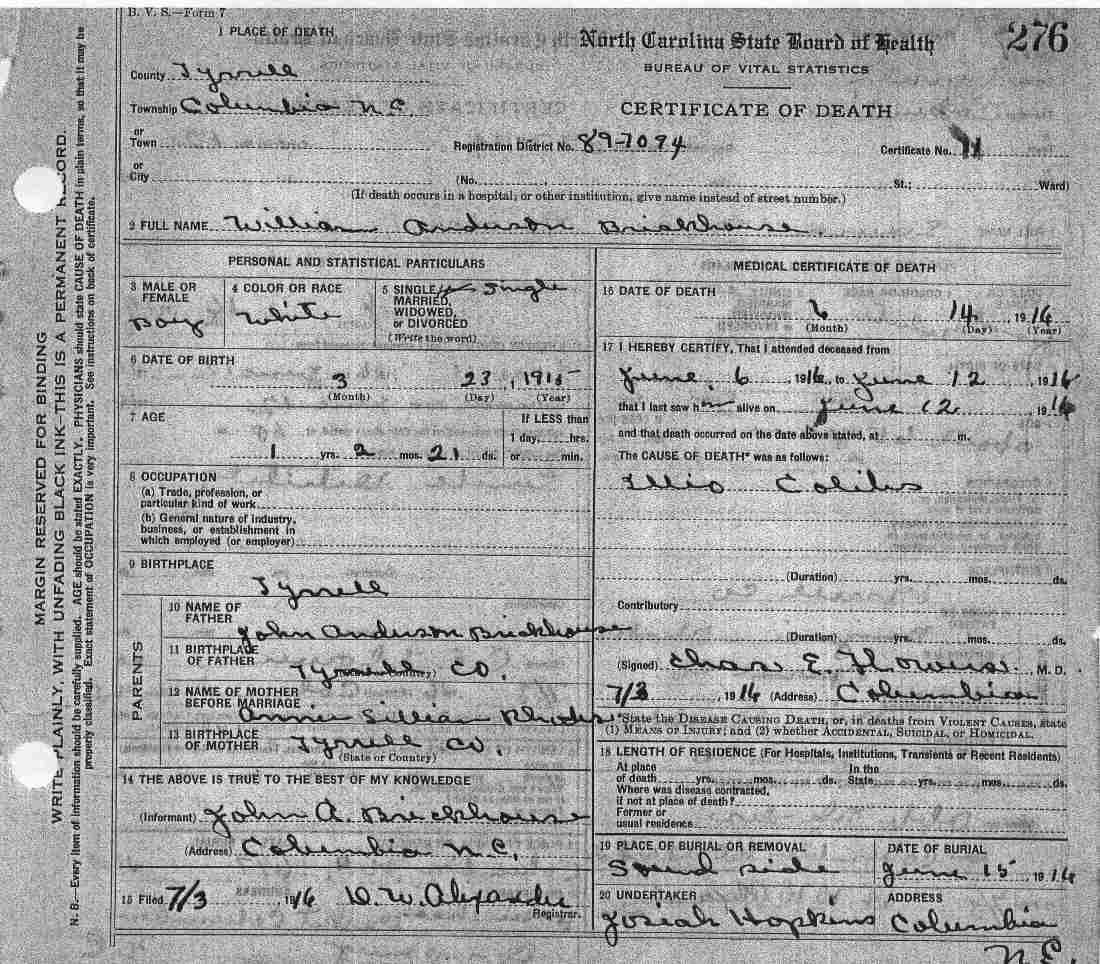 B. V. S.—Form 7
276
North Carolina State Board of Health
BUREAU OF VITAL STATISTICS
CERTIFICATE OF DEATH
1 PLACE OF DEATH
County Tyrrell
Township Columbia N.C.
or
Town
Registration District No. 89-7094
Certificate No. 11
or
City
(No. St.; Ward)
(If death occurs in a hospital, or other institution, give name instead of street number.)
2 FULL NAME William Anderson Brickhouse
PERSONAL AND STATISTICAL PARTICULARS
3 MALE OR FEMALE Boy
4 COLOR OR RACE White
5 SINGLE, MARRIED, WIDOWED, or DIVORCED Single
(Write the word)
6 DATE OF BIRTH
3 23, 1915
(Month) (Day) (Year)
7 AGE
1 yrs. 2 mos. 21 ds.
If LESS than
1 day, hrs.
or min.
8 OCCUPATION
(a) Trade, profession, or
particular kind of work
(b) General nature of industry,
business, or establishment in
which employed (or employer)
9 BIRTHPLACE
Tyrrell
PARENTS
10 NAME OF FATHER
John Anderson Brickhouse
11 BIRTHPLACE OF FATHER
Tyrrell Co.
12 NAME OF MOTHER BEFORE MARRIAGE
Annie Lillian Rhodes
13 BIRTHPLACE OF MOTHER
Tyrrell Co.
(State or Country)
14 THE ABOVE IS TRUE TO THE BEST OF MY KNOWLEDGE
(Informant) John A. Brickhouse
(Address) Columbia N.C.
15 Filed 7/3 1916 D. W. Alexander
Registrar.
MEDICAL CERTIFICATE OF DEATH
16 DATE OF DEATH
6 14, 1916
(Month) (Day) (Year)
17 I HEREBY CERTIFY, That I attended deceased from
June 6, 1916, to June 12 1916
that I last saw him alive on June 12 1916
and that death occurred on the date above stated, at m.
The CAUSE OF DEATH* was as follows:
Illio Colitis
(Duration) yrs. mos. ds.
Contributory
(Duration) yrs. mos. ds.
(Signed) Chas E. Flowers M. D.
7/3, 1916 (Address) Columbia
*State the DISEASE CAUSING DEATH, or, in deaths from VIOLENT CAUSES, state
(1) MEANS OF INJURY; and (2) whether ACCIDENTAL, SUICIDAL, or HOMICIDAL.
18 LENGTH OF RESIDENCE (For Hospitals, Institutions, Transients or Recent Residents)
At place
of death yrs. mos. ds.
In the
State yrs. mos. ds.
Where was disease contracted,
if not at place of death?
Former or
usual residence
19 PLACE OF BURIAL OR REMOVAL
Sound side
DATE OF BURIAL
June 15 1916
20 UNDERTAKER
Josiah Hopkins
ADDRESS
Columbia
N.C.
MARGIN RESERVED FOR BINDING
WRITE PLAINLY, WITH UNFADING BLACK INK—THIS IS A PERMANENT RECORD.
N. B.—Every item of information should be carefully supplied. AGE should be stated EXACTLY. PHYSICIANS should state CAUSE OF DEATH in plain terms, so that it may be
properly classified. Exact statement of OCCUPATION is very important. See instructions on back of certificate.